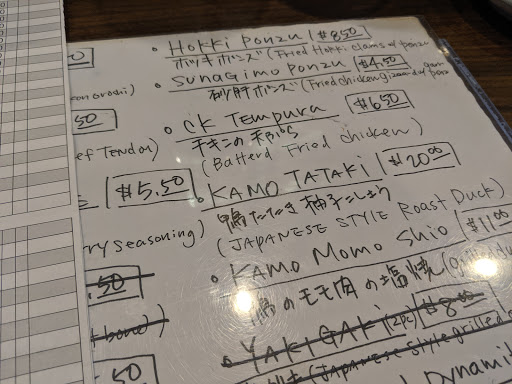 • HOKKI PONZU $8.50
ホッキポンズ (Fried Hokki clams w/ ponzu
• SUNAGIMO PONZU $4.50
砂肝ポンズ (Fried chicken
• CK TEMPURA $6.50
チキンの天ぷら
(Batterd Fried chicken)
• KAMO TATAKI $20.00
鴨たたき
(JAPANESE STYLE Roast Duck)
• KAMO MOMO Shio $11.00
鴨のモモ肉の塩焼
• YAKI GAKI (2pc) $8.00
(Japanese Style grilled
Dynami
.50
ef Tendon)
$5.50
ry seasoning)
.50
.50